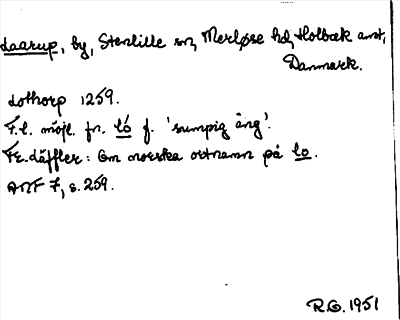 Laarup, by, Stenlille sn, Merløse hd, Holbæk amt,
Danmark.
Lothorp 1259.
F.l. möjl. fn. ló f. 'sumpig äng'.
Fr. Läffler: Om norska ortnamn på lo.
ANF 7, s. 259.
R G. 1951